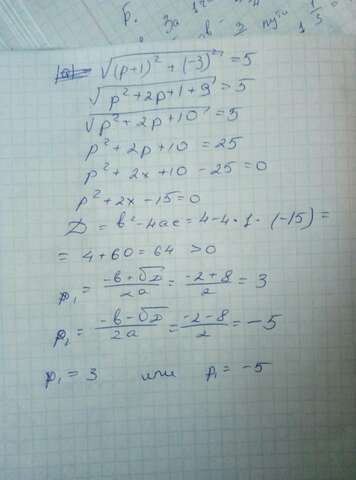 б. За
|a| = √((p+1)² + (-3)²) = 5
√(p²+2p+1+9) = 5
√(p²+2p+10) = 5
p²+2p+10 = 25
p²+2x+10-25=0
p²+2x-15=0
D = b²-4ac = 4-4·1·(-15) =
= 4+60=64 >0
p₁ = (-b+√D)/2a = (-2+8)/2 = 3
p₁ = (-b-√D)/2a = (-2-8)/2 = -5
p₁ = 3 или p₁ = -5